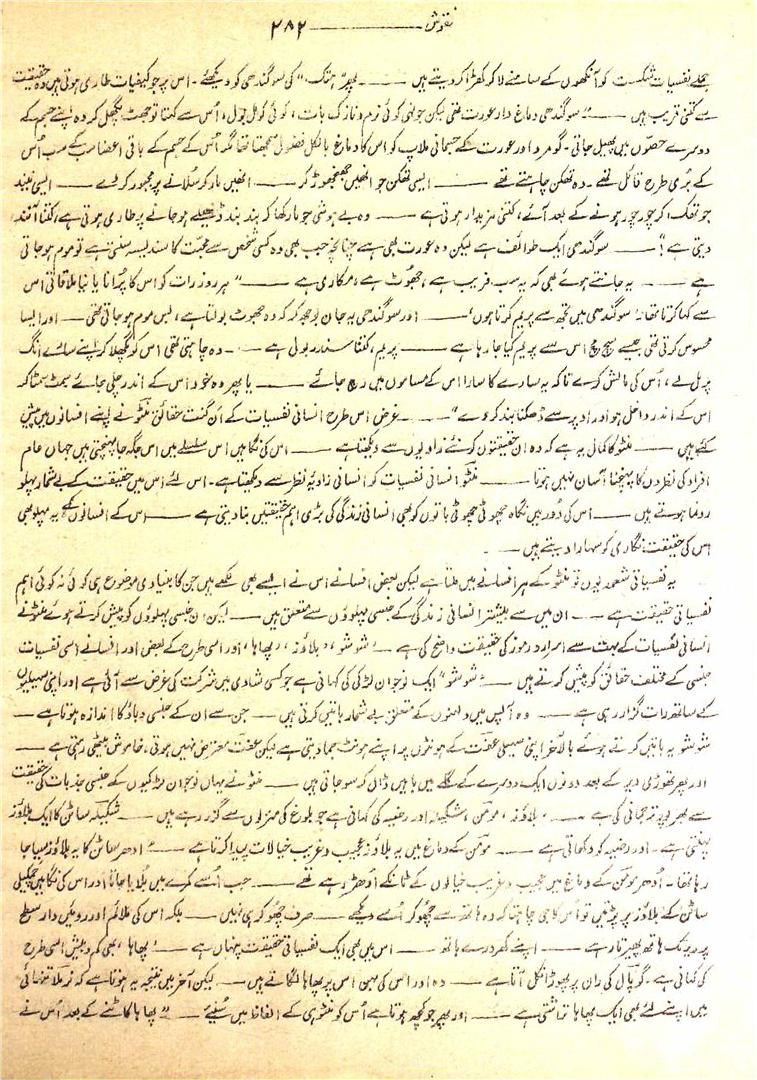 نقوش ——— ۲۸۲
جملے نفسیات شکست کو آنکھوں کے سامنے لا کر کھڑا کر دیتے ہیں —— پھر "ہتک" کی سوگندھی کو دیکھئے۔ اس پر جو کیفیات طاری ہوتی ہیں وہ حقیقت
سے کتنی قریب ہیں —— "سوگندھی دماغ دار عورت تھی لیکن جونہی کوئی نرم و نازک بات، کوئی کومل بول، اُس سے کہتا تو جھٹ پگھل کر وہ اپنے جسم کے
دوسرے حصّوں میں پھیل جاتی۔ گو مرد اور عورت کے جسمانی ملاپ کو اس کا دماغ بالکل فضول سمجھتا تھا مگر اُس کے جسم کے باقی اعضا سب کے سب اُس
کے بُری طرح قائل تھے۔ وہ تھکن چاہتے تھے —— ایسی تھکن جو انھیں جھنجھوڑ کر —— انھیں مار کر سُلانے پر مجبور کر دے —— ایسی نیند
جو تھک کر چور چور ہونے کے بعد آئے، کتنی مزیدار ہوتی ہے —— وہ بے ہوشی جو مار کھا کر بند بند ڈھیلے ہو جانے پر طاری ہوتی ہے، کتنا آنند
دیتی ہے" —— سوگندھی ایک طوائف ہے لیکن وہ عورت بھی ہے چنانچہ جب بھی وہ کسی شخص سے محبّت کا سندیسہ سنتی ہے تو موم ہو جاتی
ہے —— یہ جانتے ہوئے بھی کہ یہ سب فریب ہے، جھوٹ ہے، مکاری ہے —— "ہر روز رات کو اس کا پُرانا یا نیا ملاقاتی اس
سے کہا کرتا تھا۔ سوگندھی میں تجھ سے پریم کرتا ہوں"۔ اور سوگندھی یہ جان بوجھ کر کہ وہ جھوٹ بولتا ہے، بس موم ہو جاتی تھی —— اور ایسا
محسوس کرتی تھی جیسے سچ مچ اس سے پریم کیا جا رہا ہے —— پریم، کتنا سندر بول ہے —— وہ چاہتی تھی اس کو پگھلا کر اپنے سارے انگ
پر مل لے، اُس کی مالش کرے تاکہ یہ سارے کا سارا اس کے مساموں میں رچ جائے —— یا پھر وہ خود اس کے اندر چلی جائے سمٹ سمٹا کر
اس کے اندر داخل ہو اور اوپر سے ڈھکنا بند کر دے" —— غرض اس طرح انسانی نفسیات کے اَن گنت حقائق منٹو نے اپنے افسانوں میں پیش
کئے ہیں —— منٹو کا کمال یہ ہے کہ وہ ان حقیقتوں کو نئے زاویوں سے دیکھتا ہے —— اس کی نگاہیں اس سلسلے میں اس جگہ جا پہنچتی ہیں جہاں عام
افراد کی نظروں کا پہنچنا آسان نہیں ہوتا —— منٹو انسانی نفسیات کو انسانی زاویۂ نظر سے دیکھتا ہے۔ اس لئے اس میں حقیقت کے بے شمار پہلو
رونما ہوتے ہیں —— اس کی دُور بیں نگاہ چھوٹی چھوٹی باتوں کو بھی انسانی زندگی کی بڑی اہم حقیقتیں بنا دیتی ہے —— اس کے افسانوں کے یہ پہلو بھی
اس کی حقیقت نگاری کو سہارا دیتے ہیں ——
یہ نفسیاتی شعور یوں تو منٹو کے ہر افسانے میں ملتا ہے لیکن بعض افسانے اس نے ایسے بھی لکھے ہیں جن کا بنیادی موضوع ہی کوئی نہ کوئی اہم
نفسیاتی حقیقت ہے —— ان میں سے بیشتر انسانی زندگی کے جنسی پہلوؤں سے متعلق ہیں —— لیکن ان جنسی پہلوؤں کو پیش کرتے ہوئے منٹو نے
انسانی نفسیات کے بہت سے اسرار و رموز کی حقیقت واضح کی ہے —— "شوشو"، "بلاؤز"، "پھاہا"، اور اسی طرح کے بعض اور افسانے اسی نفسیات
جنسی کے مختلف حقائق کو پیش کرتے ہیں —— "شوشو" ایک نوجوان لڑکی کی کہانی ہے جو کسی شادی میں شرکت کی غرض سے آئی ہے اور اپنی سہیلیوں
کے ساتھ رات گزار رہی ہے —— وہ آپس میں دلہنوں کے متعلق بے شمار باتیں کرتی ہیں —— جن سے ان کے جنسی دباؤ کا اندازہ ہوتا ہے ——
شوشو یہ باتیں کرتے ہوئے بالآخر اپنی سہیلی عفت کے ہونٹوں پر اپنے ہونٹ جما دیتی ہے لیکن عفت معترض نہیں ہوتی، خاموش بیٹھی رہتی ہے ——
اور پھر تھوڑی دیر کے بعد دونوں ایک دوسرے کے گلے میں باہیں ڈال کر سو جاتی ہیں —— منٹو نے یہاں نوجوان لڑکیوں کے جنسی جذبات کی حقیقت
سے بھر پور ترجمانی کی ہے —— "بلاؤز"، مومن، شکیلہ اور رضیہ کی کہانی ہے جو بلوغ کی منزلوں سے گزر رہے ہیں —— شکیلہ ساٹن کا ایک بلاؤز
پہنتی ہے۔ اور رضیہ کو دکھاتی ہے —— مومن کے دماغ میں یہ بلاؤز عجیب و غریب خیالات پیدا کرتا ہے —— "ادھر ساٹن کا یہ بلاؤز سیا جا
رہا تھا۔ اُدھر مومن کے دماغ میں عجیب و غریب خیالوں کے ٹانکے اُدھڑ رہے تھے —— جب اُسے کمرے میں بلایا جاتا اور اس کی نگاہیں چمکیلی
ساٹن کے بلاؤز پر پڑتیں تو اُس کا جی چاہتا کہ وہ ہاتھ سے چھو کر اُسے دیکھے —— صرف چھو کر ہی نہیں —— بلکہ اس کی ملائم اور روئیں دار سطح
پر دیر تک ہاتھ پھیرتا رہے —— اپنے کھردرے ہاتھ —— اس میں بھی ایک نفسیاتی حقیقت پنہاں ہے —— "پھاہا"، بھی کم و بیش اسی طرح
کی کہانی ہے۔ گوپال کی ران پر پھوڑا نکل آتا ہے —— وہ اور اس کی بہن اس پر پھاہا لگاتے ہیں —— لیکن آخر میں نتیجہ یہ ہوتا ہے کہ نرملا تنہائی
میں اپنے لئے بھی ایک پھاہا تراشتی ہے —— اور پھر جو کچھ ہوتا ہے اُس کو منٹو ہی کے الفاظ میں سُنیئے —— "پھاہا کاٹنے کے بعد اُس نے